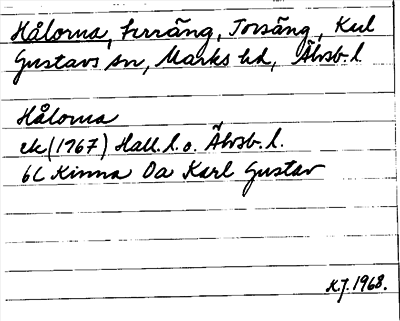 Hålorna, Furräng, Torsäng, Karl
Gustavs sn, Marks hd, Älvsb. l.
Hålorna
ek (1967) Hall. l. o. Älvsb. l.
6C Kinna Oa Karl Gustav
K.J. 1968.